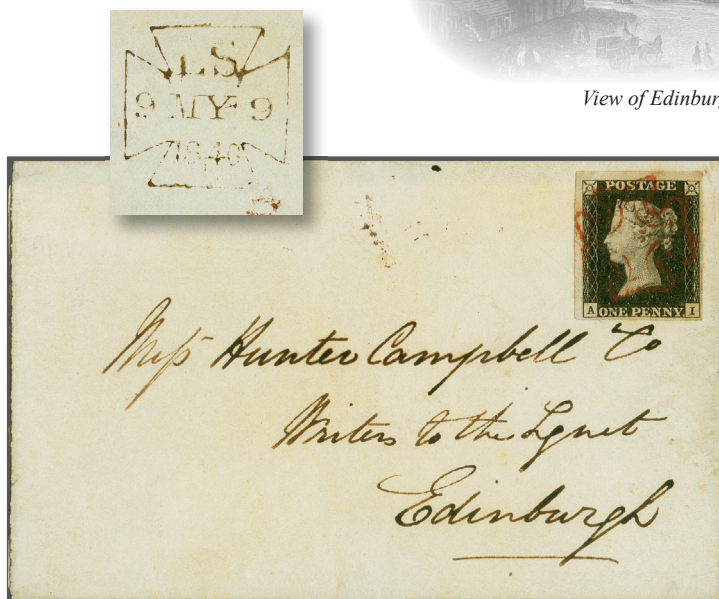 LS
9 MY 9
1840
View of Edinburg
POSTAGE
A ONE PENNY I
Messrs Hunter Campbell Co
Writers to the Signet
Edinburgh